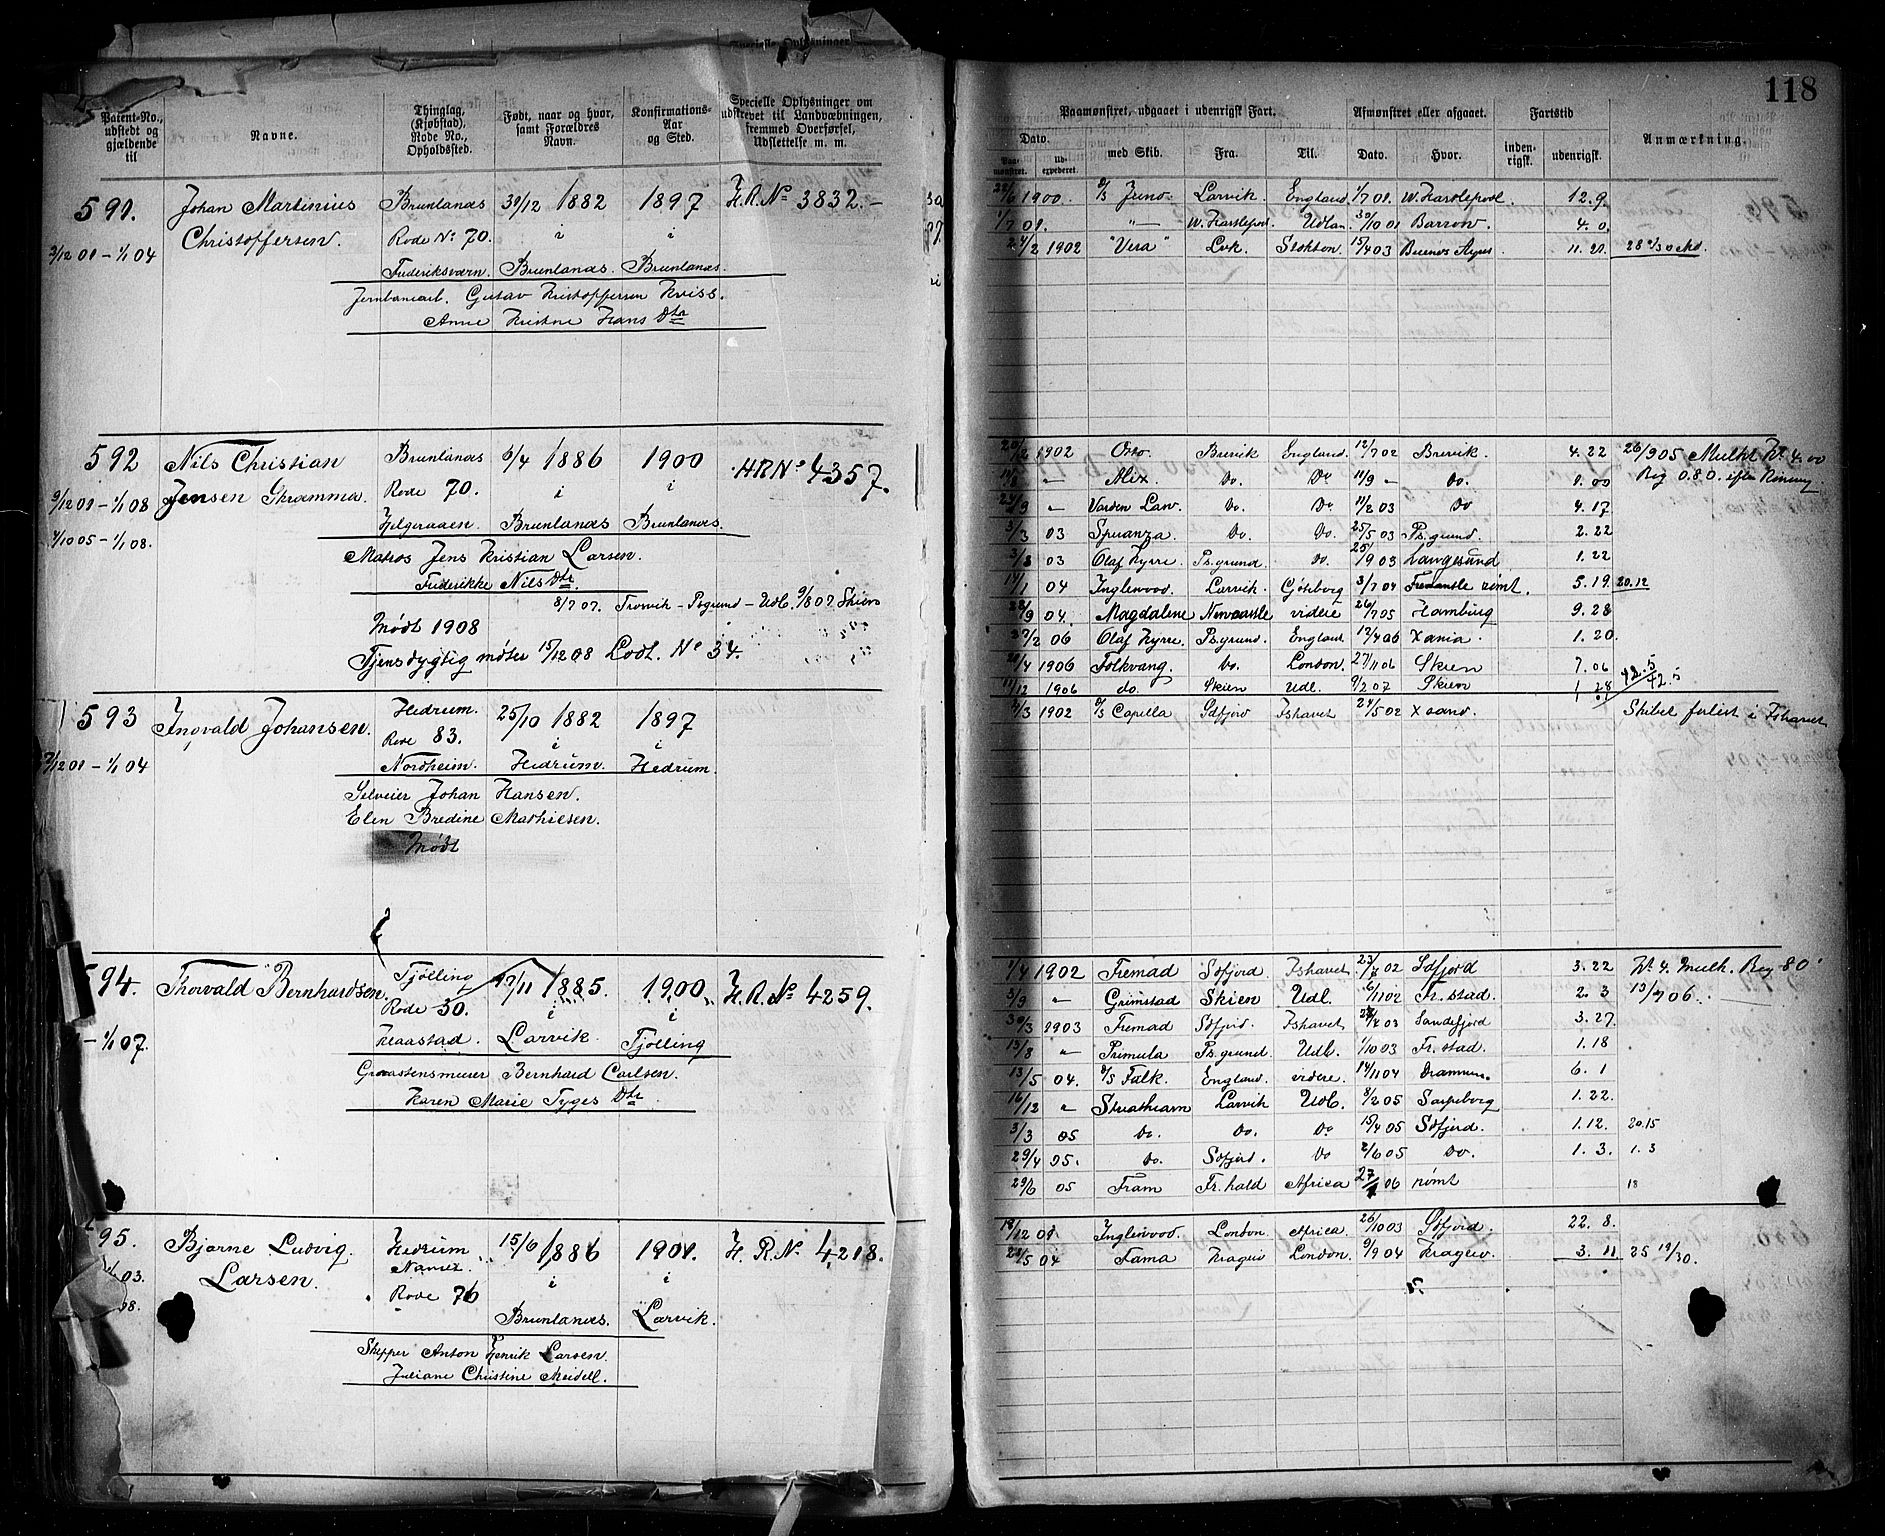 118
Patent-No., udstedt og gjældende til
Navne.
Thinglag, (Kjøbstad), Rode No., Opholdssted.
Født, naar og hvor, samt Forældres Navn.
Konfirmations-Aar og Sted.
Specielle Oplysninger om udstrevet til Landvæbningen, fremmed Overførsel, Udslettelse m. m.
Paamønstret, udgaaet i udenrigsk Fart.
Afmønstret eller afgaaet.
Fartstid
Anmærkning.
Dato.
Paa-mønstret.
Ud-expederet.
med Skib.
Fra.
Til.
Dato.
Hvor.
inden-rigsk.
udenrigsk.
591. Johan Martinius Brunlanæs 30/12 1882 1897 H.R.No 3832.-
Christoffersen. Rode No 70. i i
3/12 01 - 1/1 04 Frederiksværn. Brunlanæs. Brunlanæs.
Jernbanearb. Gustav Kristoffersen Kviss.
Anne Kristine Hans Dtr
22/6 1900. S/S Juno Larvik England 1/7 01. W. Hartlepool. 12.9.
1/7 01. " W. Hartlepool. Udlan. 30/10 01 Barrow. 4.0.
2/2 1902 "Vera" Lvk. Stokton. 15/4 03 Buenos Ayres 11.20.
592 Nils Christian Brunlanæs 6/4 1886 1900 HRNo 4357.
Jensen Skramma. Rode 70. i i
9/12 01 - 1/1 08 Helgeraaen. Brunlanæs Brunlanæs.
7/10 05 - 1/1 08.
Matros Jens Kristian Larsen.
Frederikke Nils Dtr
8/7 07. Trosvik - Psgrund - Udl. 9/8 07. Skien
Mødt 1908
Tjensdygtig møter 15/12 08 Lodt. No 34.
20/2 1902 Otto Brevik England. 12/7 02 Brevik. 4.22 26/9 05 Mulkt Kr. 4.00
11/8 " Alix. Do. Do 11/9 - Do. 0.00 Bog 0.80. efter Rømning
24/9 " Varden Law. Do. Do. 11/2 03 Do 4.17
3/3 03 Speranza. Do. Do. 25/5 03 Psgrund. 2.22
3/8 03 Olaf Kyrre Psgrund Do. 25/9 03 Langesund 1.22
14/1 04 Inglewood. Larvik Gøteborg 3/7 04 Fremantle rømt. 5.19. 20.12
28/9 04. Magdalene Newcastle videre 26/7 05 Hamburg 9.28
22/2 06 Olaf Kyrre. Psgrund. England 12/4 06 Xania. 1.20.
20/4 1906 Folkvang. Do. London. 27/11 06 Skien 7.06
11/12 1906 do. Skien Udl. 9/2 07 Skien 1.28
593 Ingvald Johansen. Hedrum. 25/10 1882 1897
Rode 83. i i
7/12 01 - 1/1 04 Nordheim. Hedrum. Hedrum.
Selveier Johan Hansen.
Elen Bredine Mathiesen.
Mødt
4/3 1902 S/S Capella Sdfjord Ishavet 24/5 02 Xsand. Skibet forlist i Ishavet
594. Thorvald Bernhardsen. Tjølling 17/11 1885. 1900 H.R.No 4259.
Rode 30. i i
- 1/1 07. Klaastad. Larvik. Tjølling
Graastensmurer Bernhard Carlsen.
Karen Marie Tyges Dtr
1/4 1902 Fremad Sdfjord. Ishavet 23/7 02 Sdfjord 3.22 Kr 4. Mulk. Bog 80
3/9 " Grimstad Skien Udl. 6/11 02 Fr.stad. 2.3 13/7 06.
30/3 1903 Fremad Sdfjord. Ishavet 24/7 03 Sandefjord 3.27.
13/8 " Primula Psgrund. Udl. 1/10 03 Fr.stad. 1.18
13/5 04. S/S Falk. England. videre. 14/11 04 Drammen. 6.1
16/12 " Streatham Larvik Udl. 8/2 05 Sarpsborg 1.22.
3/3 05 Do. Do. Do 15/4 05 Sdfjord. 1.12. 20.15
29/4 05. Do. Sdfjord. Do 2/6 05 Do. 1.3. 1.3
29/6 05 Fram Fr.hald Africa 27/1 06 rømt 18
95. Bjarne Ludvig Hedrum 15/6 1886 1901. H.R.No. 4218.
Larsen. Nanset. i i
Rode 76
Brunlanæs. Larvik.
Skipper Anton Henrik Larsen.
Juliane Christine Meidell.
18/12 01 Inglewood. London. Africa. 26/10 03 Sdfjord. 22.8.
28/5 04 Fama Kragerø London. 9/9 04 Kragerø. 3.11 25 19/30.